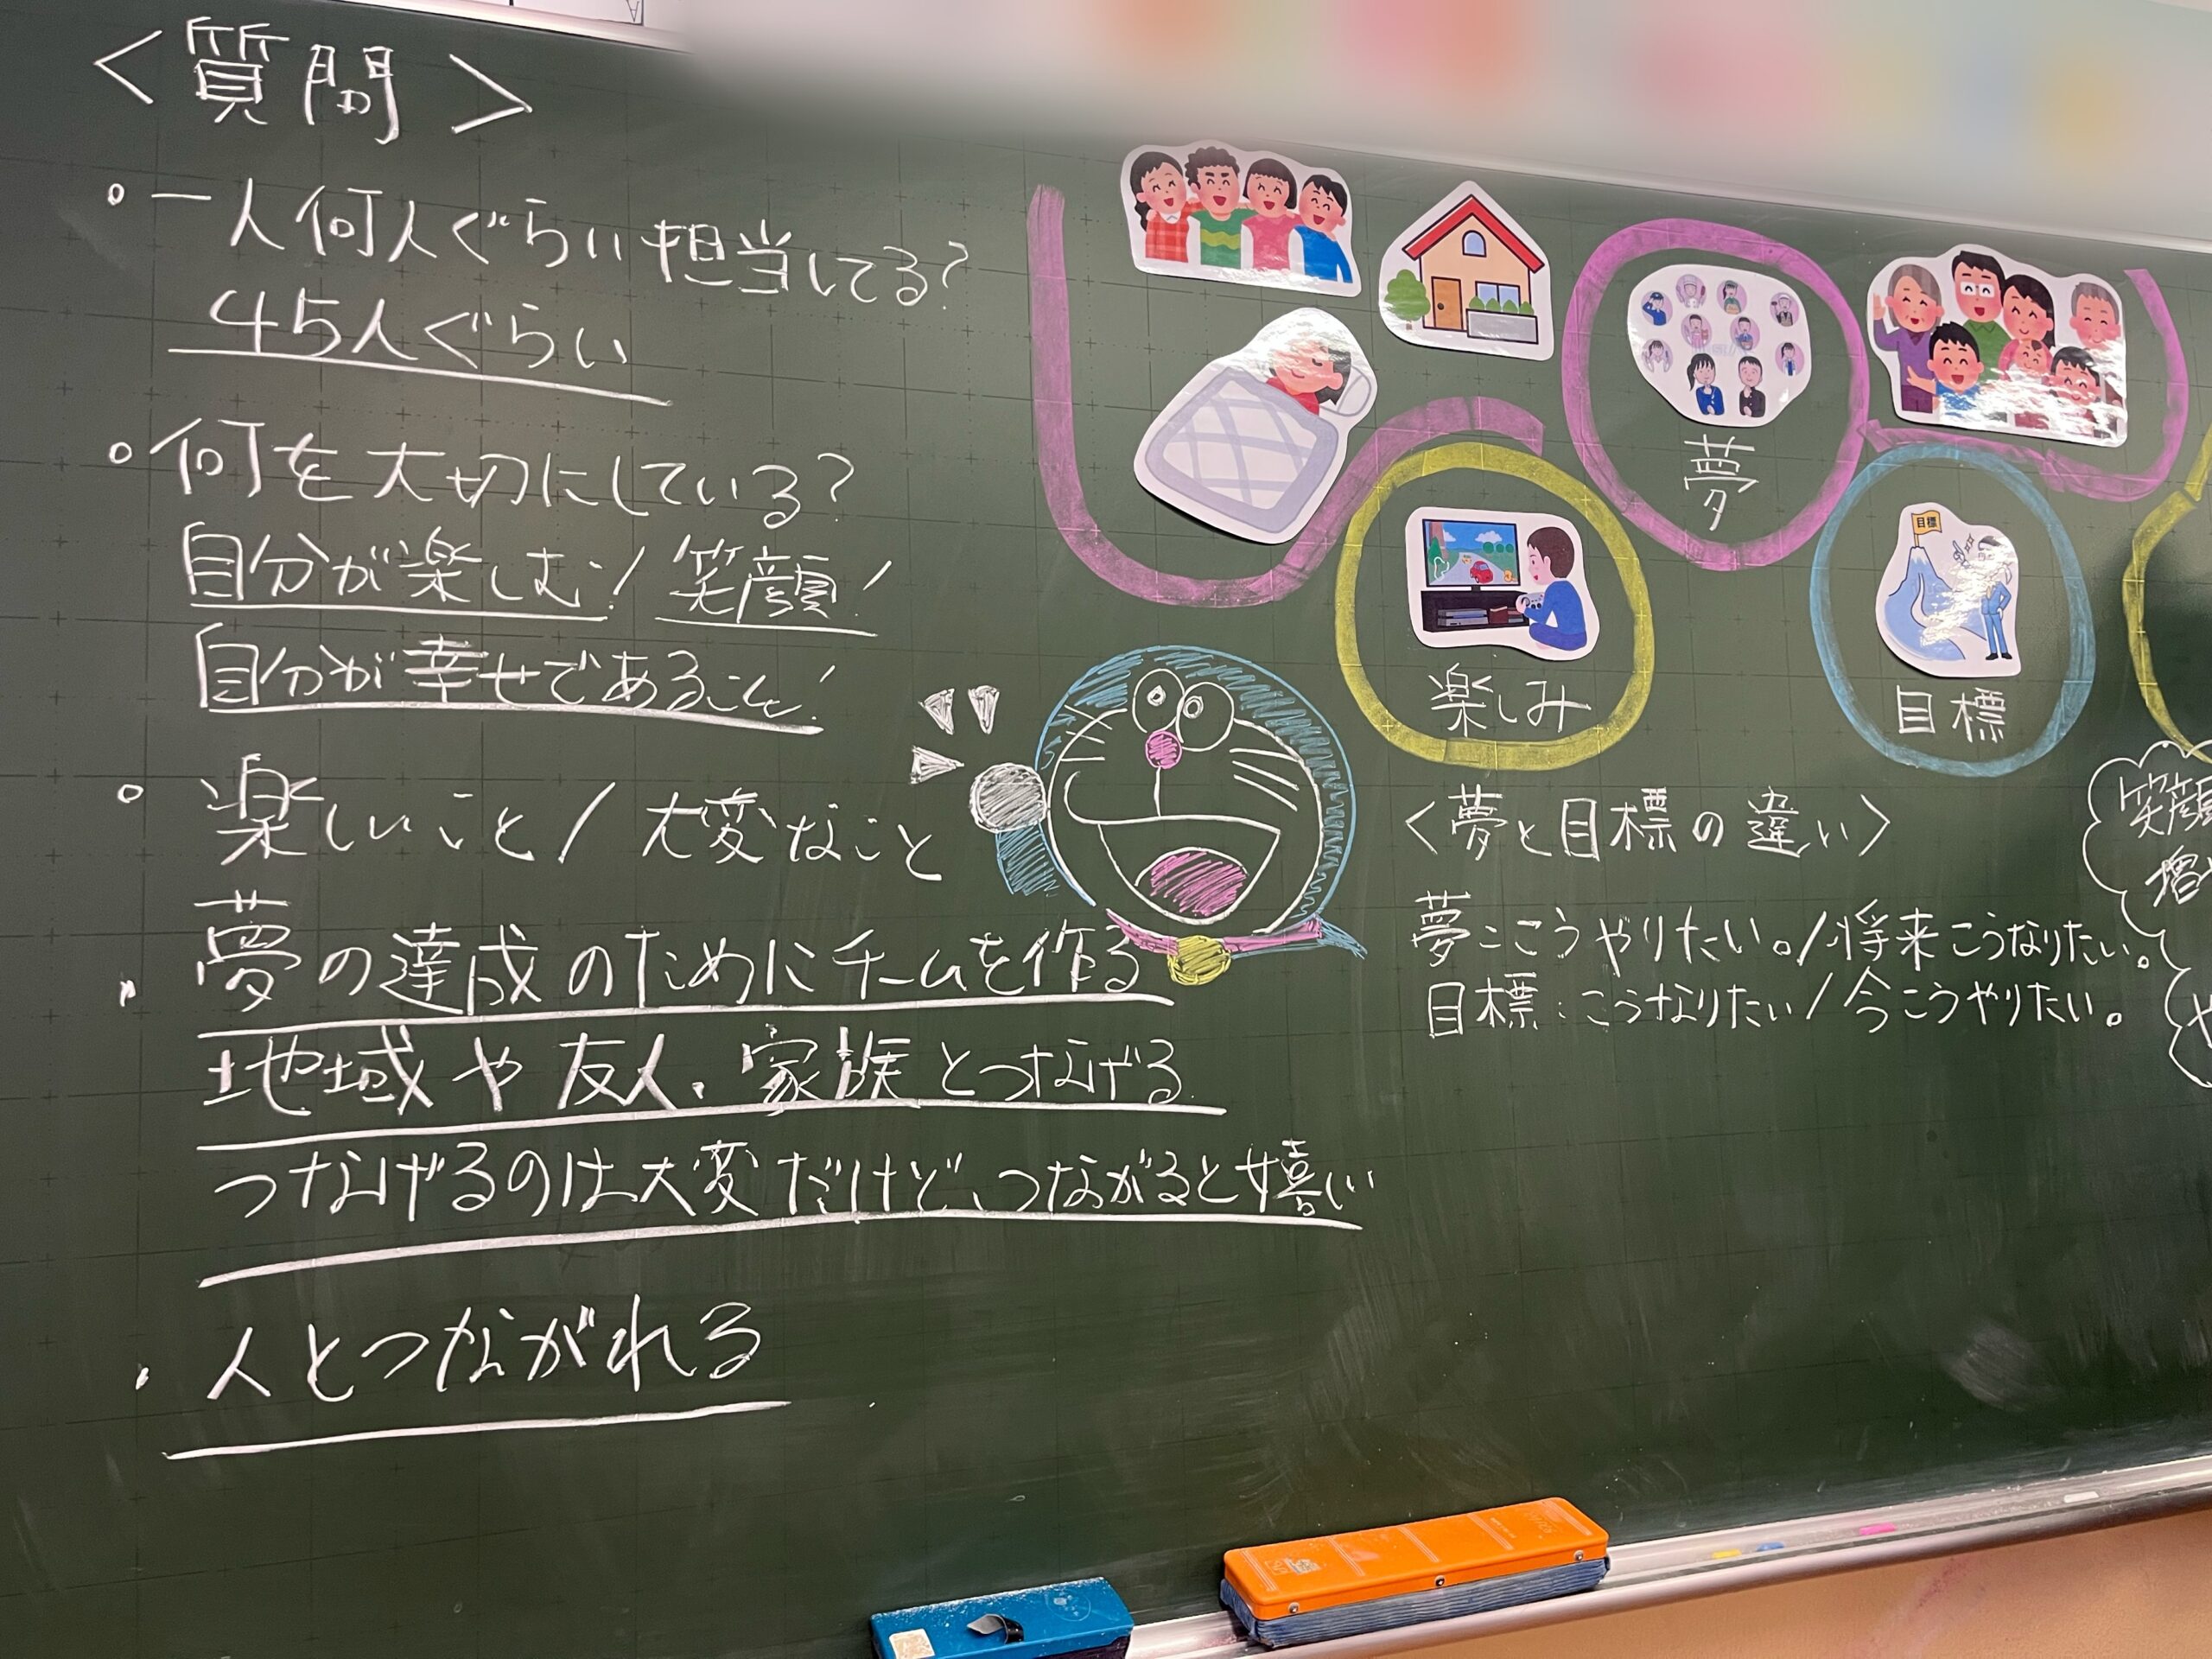 <質問>
・一人何人ぐらい担当してる?
45人ぐらい
・何を大切にしている?
自分が楽しむ! 笑顔!
自分が幸せであること!
・楽しいこと/大変なこと
・夢の達成のためにチームを作る
地域や友人、家族とつなげる
つなげるのは大変だけど、つながると嬉しい
・人とつながれる
夢
目標
楽しみ
目標
<夢と目標の違い>
夢:こうやりたい。/将来こうなりたい。
目標:こうなりたい/今こうやりたい。
笑顔
増